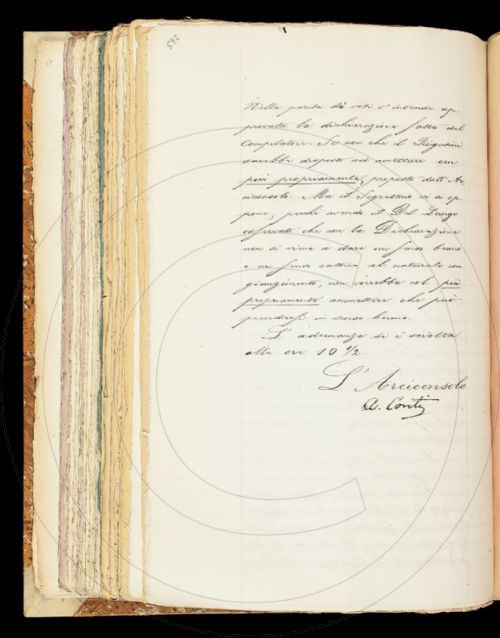 592
Nella parità di voti s'intende ap-
provata la dichiarazione fatta dal
Compilatore. Se non che il Rigutini
sarebbe disposto ad accettare un
più propriamente, proposto dall'Ar-
ciconsolo. Ma il Segretario vi si op-
pone, perché avendo il Del Lungo
osservato che con la Dichiarazione
non si viene a dare un senso buono
o un senso cattivo al naturale con-
giungimento, non vorrebbe col più
propriamente ammettere che può
prendersi in senso buono.
L'adunanza si è sciolta
alle ore 10 1/2.
L'Arciconsolo
A. Conti